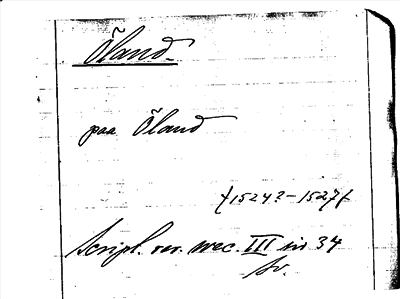 Õland.
paa Õland
(1524?-1527)
Script. rer. svec. III in 34
Sv.